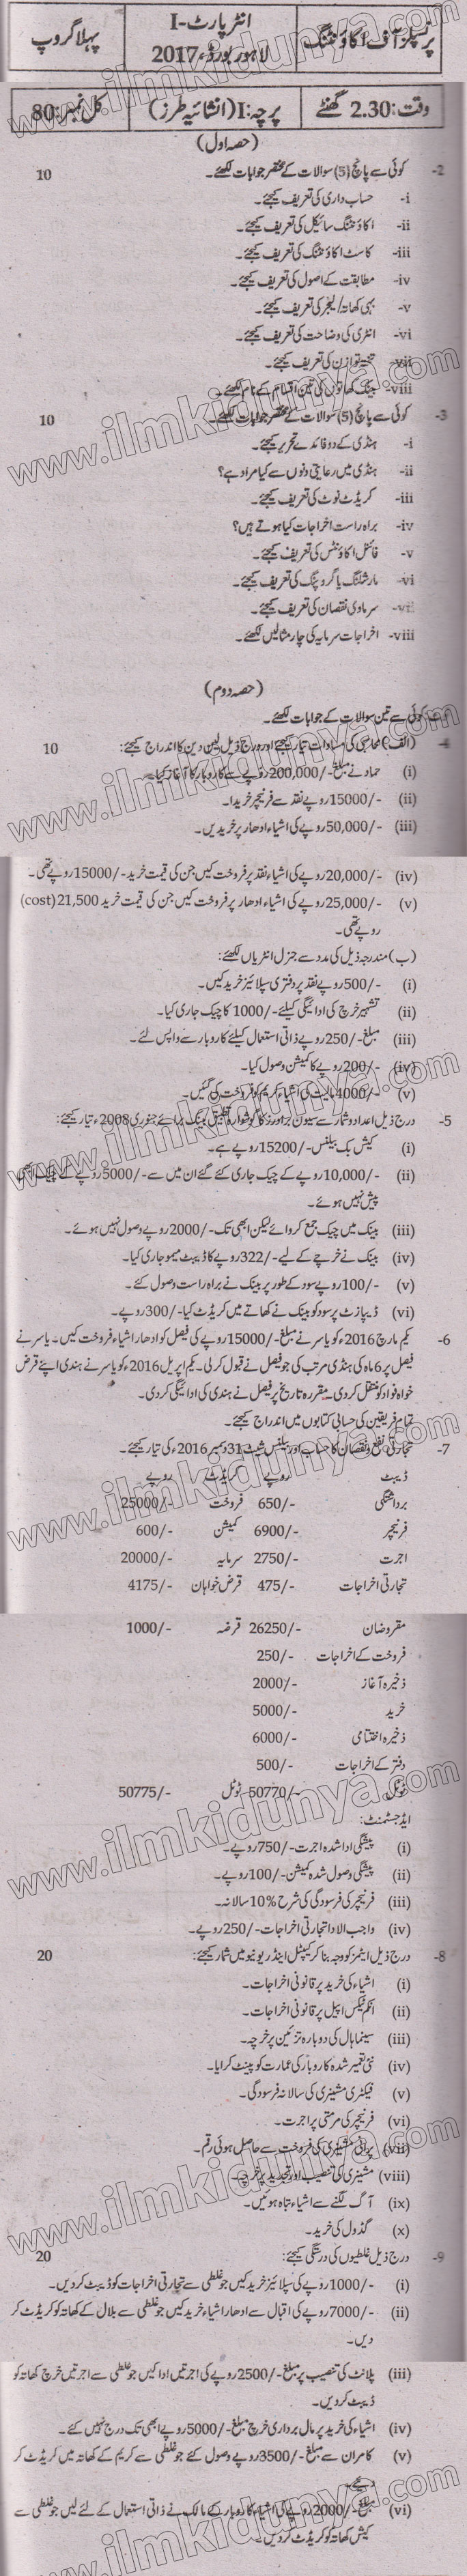 پرنسپلز آف اکاؤنٹنگ
انٹر پارٹ-I
لاہور بورڈ، 2017
پہلا گروپ
وقت: 2.30 گھنٹے
پرچہ: I (انشائیہ طرز)
کل نمبر: 80
(حصہ اول)
2- کوئی سے پانچ (5) سوالات کے مختصر جوابات لکھئے۔ 10
i- حساب داری کی تعریف کیجئے۔
ii- اکاؤنٹنگ سائیکل کی تعریف کیجئے۔
iii- کاسٹ اکاؤنٹنگ کی تعریف کیجئے۔
iv- مطابقت کے اصول کی تعریف کیجئے۔
v- بہی کھاتہ/لیجر کی تعریف کیجئے۔
vi- انٹری کی وضاحت کی تعریف کیجئے۔
vii- تختہ توازن کی تعریف کیجئے۔
viii- بینک کھاتوں کی تین اقسام کے نام لکھئے۔
3- کوئی سے پانچ (5) سوالات کے مختصر جوابات لکھئے۔ 10
i- ہنڈی کے دو فائدے تحریر کیجئے۔
ii- ہنڈی میں رعایتی دنوں سے کیا مراد ہے؟
iii- کریڈٹ نوٹ کی تعریف کیجئے۔
iv- براہ راست اخراجات کیا ہوتے ہیں؟
v- فائنل اکاؤنٹس کی تعریف کیجئے۔
vi- مارشلنگ یا گروپنگ کی تعریف کیجئے۔
vii- سرمادی نقصان کی تعریف کیجئے۔
viii- اخراجات سرمایہ کی چار مثالیں لکھئے۔
(حصہ دوم)
کوئی سے تین سوالات کے جوابات لکھئے۔
4- (الف) محاسبی کی مساوات تیار کیجئے اور درج ذیل لین دین کا اندراج کیجئے: 10
(i) حماد نے مبلغ -/200,000 روپے سے کاروبار کا آغاز کیا۔
(ii) -/15000 روپے نقد سے فرنیچر خریدا۔
(iii) -/50,000 روپے کی اشیاء ادھار پر خریدیں۔
(iv) -/20,000 روپے کی اشیاء نقد پر فروخت کیں جن کی قیمت خرید -/15000 روپے تھی۔
(v) -/25,000 روپے کی اشیاء ادھار پر فروخت کیں جن کی قیمت خرید 21,500 (cost)
روپے تھی۔
(ب) مندرجہ ذیل کی مدد سے جنرل انٹریاں لکھئے:
(i) -/500 روپے نقد پر دفتری سپلائیز خرید کیں۔
(ii) تشہیر خرچ کی ادائیگی کیلئے -/1000 کا چیک جاری کیا۔
(iii) مبلغ -/250 روپے ذاتی استعمال کیلئے کاروبار سے واپس لئے۔
(iv) -/200 روپے کا کمیشن وصول کیا۔
(v) -/4000 مالیت کی اشیاء کریم کو فروخت کی گئیں۔
5- درج ذیل اعداد و شمار سے سیون برادرز کا گوشوارہ تطبیق بینک برائے جنوری 2008ء تیار کیجئے:
(i) کیش بک بیلنس -/15200 روپے ہے۔
(ii) -/10,000 روپے کے چیک جاری کئے گئے ان میں سے -/5000 روپے کے چیک ابھی
پیش نہیں ہوئے۔
(iii) بینک میں چیک جمع کروائے لیکن ابھی تک -/2000 روپے وصول نہیں ہوئے۔
(iv) بینک نے خرچے کے لیے -/322 روپے کا ڈیبٹ میمو جاری کیا۔
(v) -/100 روپے سود کے طور پر بینک نے براہ راست وصول کئے۔
(vi) ڈیپازٹ پر سود کو بینک نے کھاتے میں کریڈٹ کیا -/300 روپے۔
6- یکم مارچ 2016ء کو یاسر نے مبلغ -/15000 روپے کی فیصل کو ادھار اشیاء فروخت کیں۔ یاسر نے
فیصل پر 6 ماہ کی ہنڈی مرتب کی جو فیصل نے قبول کرلی۔ یکم اپریل 2016ء کو یاسر نے ہنڈی اپنے قرض
خواہ فواد کو منتقل کر دی۔ مقررہ تاریخ پر فیصل نے ہنڈی کی ادائیگی کر دی۔
تمام فریقین کی حسابی کتابوں میں اندراج کیجئے۔
7- تجارتی نفع و نقصان کا حساب اور بیلنس شیٹ 31 دسمبر 2016ء کی تیار کیجئے۔
ڈیبٹ روپے کریڈٹ روپے
برداشتگی -/650 فروخت -/25000
فرنیچر -/6900 کمیشن -/600
اجرت -/2750 سرمایہ -/20000
تجارتی اخراجات -/475 قرض خواہان -/4175
مقروضان -/26250 قرضہ -/1000
فروخت کے اخراجات -/250
ذخیرہ آغاز -/2000
خرید -/5000
ذخیرہ اختتامی -/6000
دفتر کے اخراجات -/500
ٹوٹل -/50770 ٹوٹل -/50775
ایڈجسٹمنٹ:
(i) پیشگی ادا شدہ اجرت -/750 روپے۔
(ii) پیشگی وصول شدہ کمیشن -/100 روپے۔
(iii) فرنیچر کی فرسودگی کی شرح 10% سالانہ۔
(iv) واجب الادا تجارتی اخراجات -/250 روپے۔
8- درج ذیل آیٹمز کو وجہ بنا کر کیپٹل اینڈ ریونیو میں شمار کیجئے: 20
(i) اشیاء کی خرید پر قانونی اخراجات۔
(ii) انکم ٹیکس اپیل پر قانونی اخراجات۔
(iii) سینما ہال کی دوبارہ تزئین پر خرچہ۔
(iv) نئی تعمیر شدہ کاروبار کی عمارت کو پینٹ کرایا۔
(v) فیکٹری مشینری کی سالانہ فرسودگی۔
(vi) فرنیچر کی مرمتی پر اجرت۔
(vii) پرانی مشینری کی فروخت سے حاصل ہوئی رقم۔
(viii) مشینری کی تنصیب اور تجدید پر خرچہ۔
(ix) آگ لگنے سے اشیاء تباہ ہوئیں۔
(x) گڈول کی خرید۔
9- درج ذیل غلطیوں کی درستگی کیجئے: 20
(i) -/1000 روپے کی سپلائیز خرید کیں جو غلطی سے تجارتی اخراجات کو ڈیبٹ کر دیں۔
(ii) -/7000 روپے کی اقبال سے ادھار اشیاء خرید کیں جو غلطی سے بلال کے کھاتہ کو کریڈٹ کر
دیں۔
(iii) پلانٹ کی تنصیب پر مبلغ -/2500 روپے کی اجرتیں ادا کیں جو غلطی سے اجرتیں خرچ کھاتہ کو
ڈیبٹ کر دیں۔
(iv) اشیاء کی خرید پر مال برداری خرچ مبلغ -/5000 روپے ابھی تک درج نہیں کئے۔
(v) کامران سے مبلغ -/3500 روپے وصول کئے جو غلطی سے کریم کے کھاتہ میں کریڈٹ کر
دیئے۔
(vi) مبلغ -/2000 روپے کی اشیاء کاروبار کے مالک نے ذاتی استعمال کے لئے لیں جو غلطی سے
کیش کھاتہ کو کریڈٹ کر دیں۔
www.ilmkidunya.com